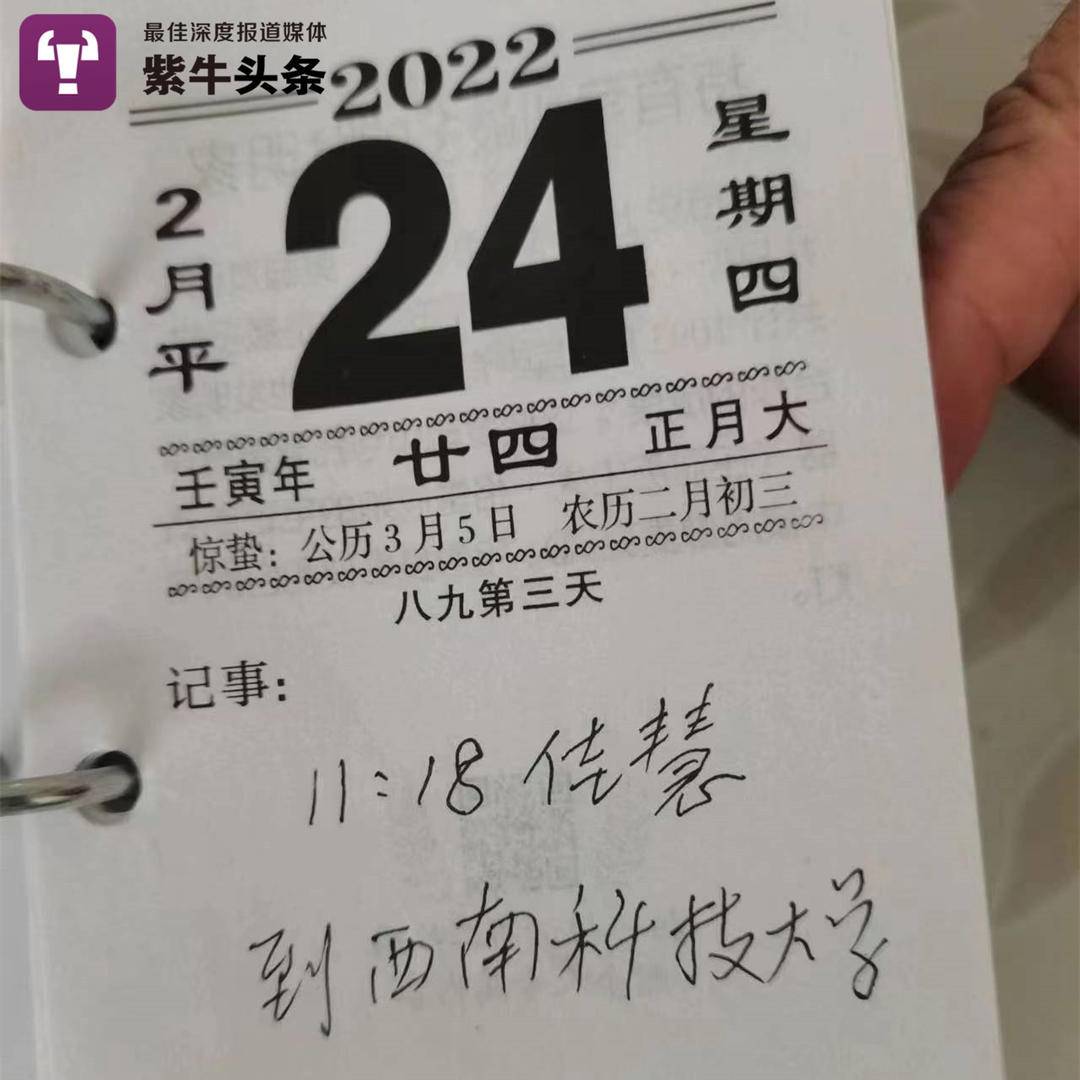 最佳深度报道媒体
紫牛头条
2022
2月平
24
星期四
壬寅年 廿四 正月大
惊蛰：公历3月5日 农历二月初三
八九第三天
记事：
11:18 佳慧
到西南科技大学